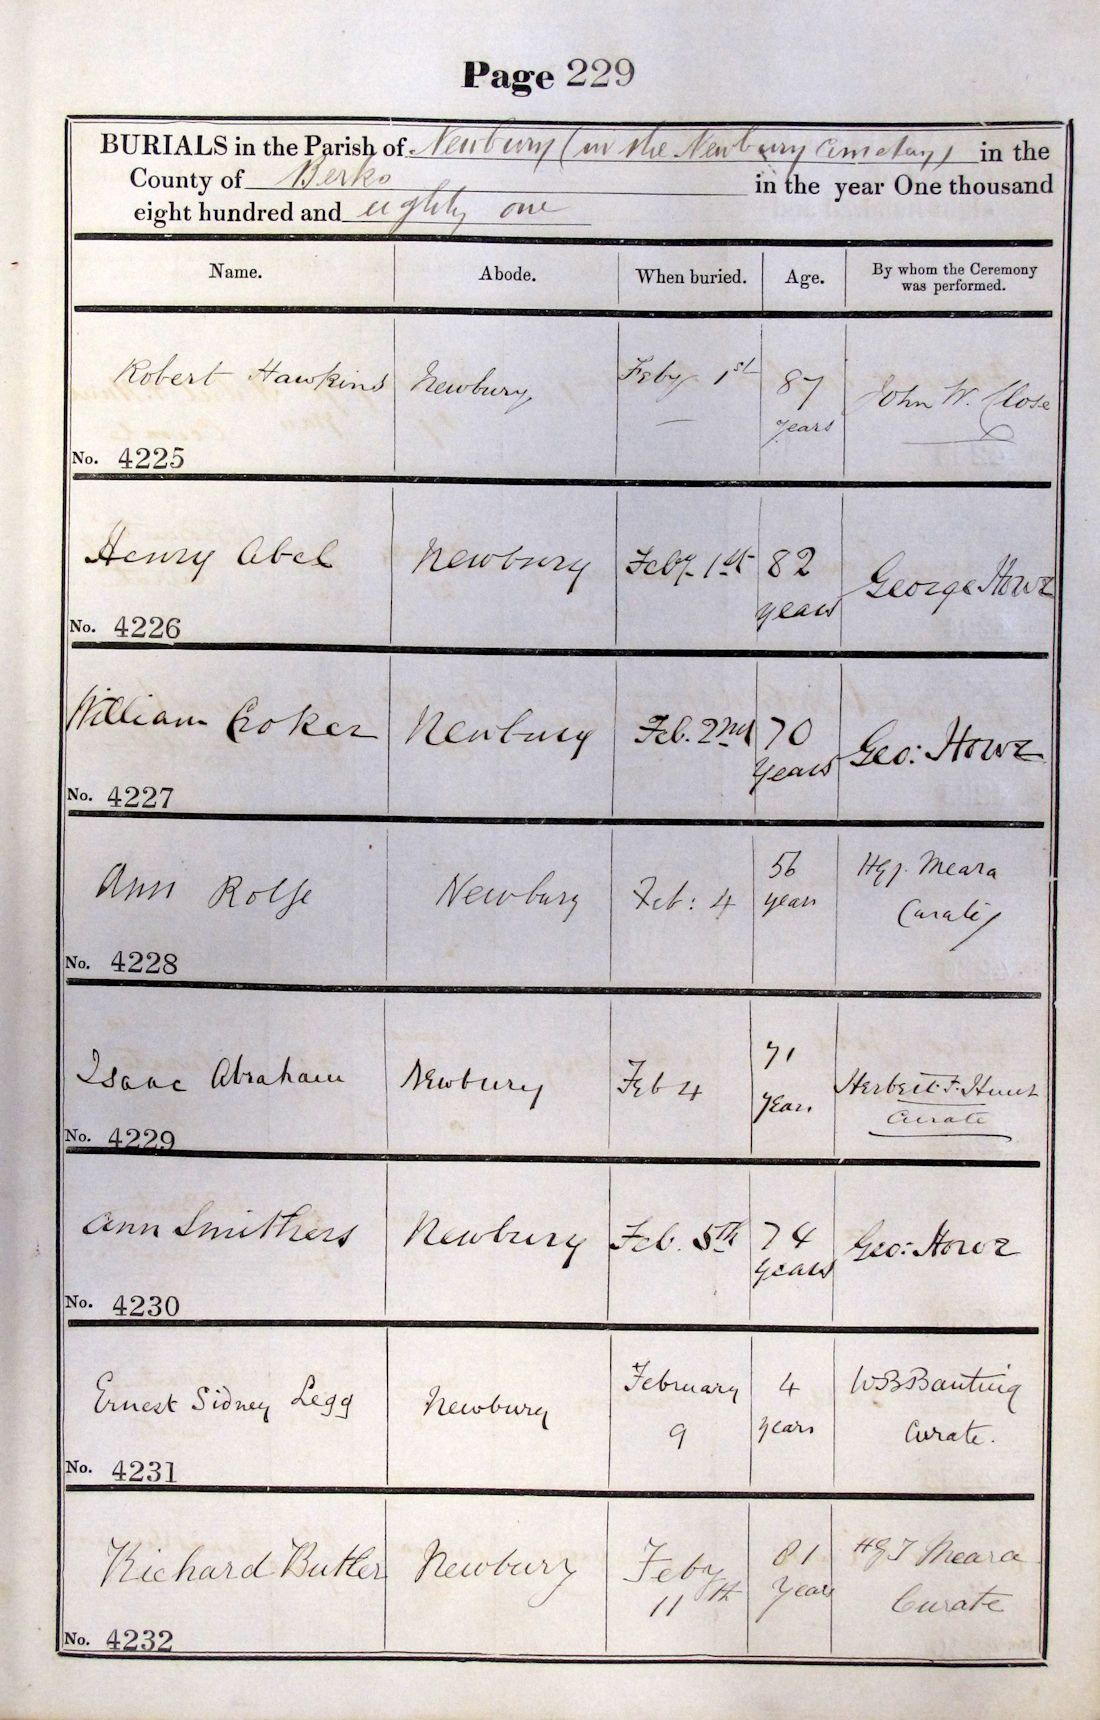 Page 229
BURIALS in the Parish of Newbury (in the Newbury Cemetery) in the
County of Berks in the year One thousand
eight hundred and eighty one
Name. Abode. When buried. Age. By whom the Ceremony was performed.
Robert Hawkins Newbury Feby 1st 87 years John W. Close
No. 4225
Henry Abel Newbury Feby. 1st 82 years George Howe
No. 4226
William Croker Newbury Feb. 2nd 70 years Geo: Howe
No. 4227
Ann Rolfe Newbury Feb: 4 56 years HGJ. Meara Curate
No. 4228
Isaac Abraham Newbury Feb 4 71 years Herbert F. Hunt Curate
No. 4229
Ann Smithers Newbury Feb. 5th 74 years Geo: Howe
No. 4230
Ernest Sidney Legg Newbury February 9 4 years WB Banting Curate.
No. 4231
Richard Butler Newbury Feby 11th 81 years HGJ Meara Curate
No. 4232